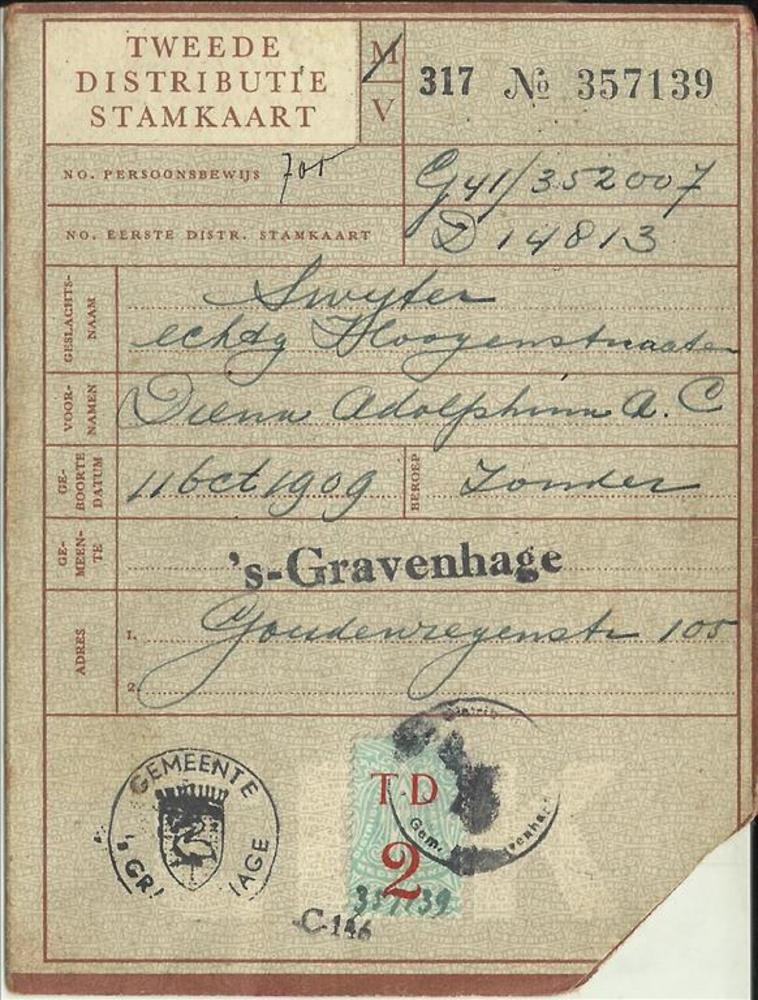 TWEEDE
DISTRIBUTIE
STAMKAART
M
V
317 No 357139
NO. PERSOONSBEWIJS 705
G41/352007
NO. EERSTE DISTR. STAMKAART
D 14813
GESLACHTS-
NAAM
Swyter
echtg Hoogenstraaten
VOOR-
NAMEN
Diena Adolphina A. C
GE-
BOORTE
DATUM
11 Oct 1909
BEROEP
Zonder
GE-
MEEN-
TE
's-Gravenhage
ADRES
1. Goudenregenstr 105
2.
GEMEENTE
's GR
AGE
T D
2
357139
Distrib
Gem.
venha
C-146